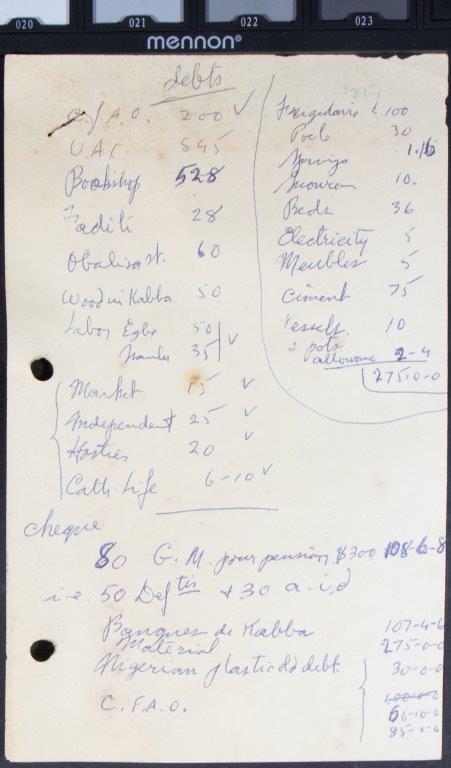 020 021 022 023
mennon®
debts
C.F.A.O. 200 ✓
U.A.C 545
Bookshop 528
Faditi 28
60
Wood in Kabba 50
Labor Egbe 50
35 ✓
Market 15 ✓
Independent 25 ✓
Hosties 20 ✓
Cath. Life 6-10 ✓
Frigidaire £ 100
30
10.
Beds 36
Electricity 5
Meubles 5
Ciment 75
Vessels. 10
& pots
allowance 2-4
275-0-0
cheque
80 G. M. pour pension $300 108-6-8
i-e. 50 + 30 a.i.d
Banques de Kabba 107-4-6
Material 275-0-0
Nigerian plastic old debt. 30-0-0
100-0-0
C.F.A.O. 66-10-0
85-0-0